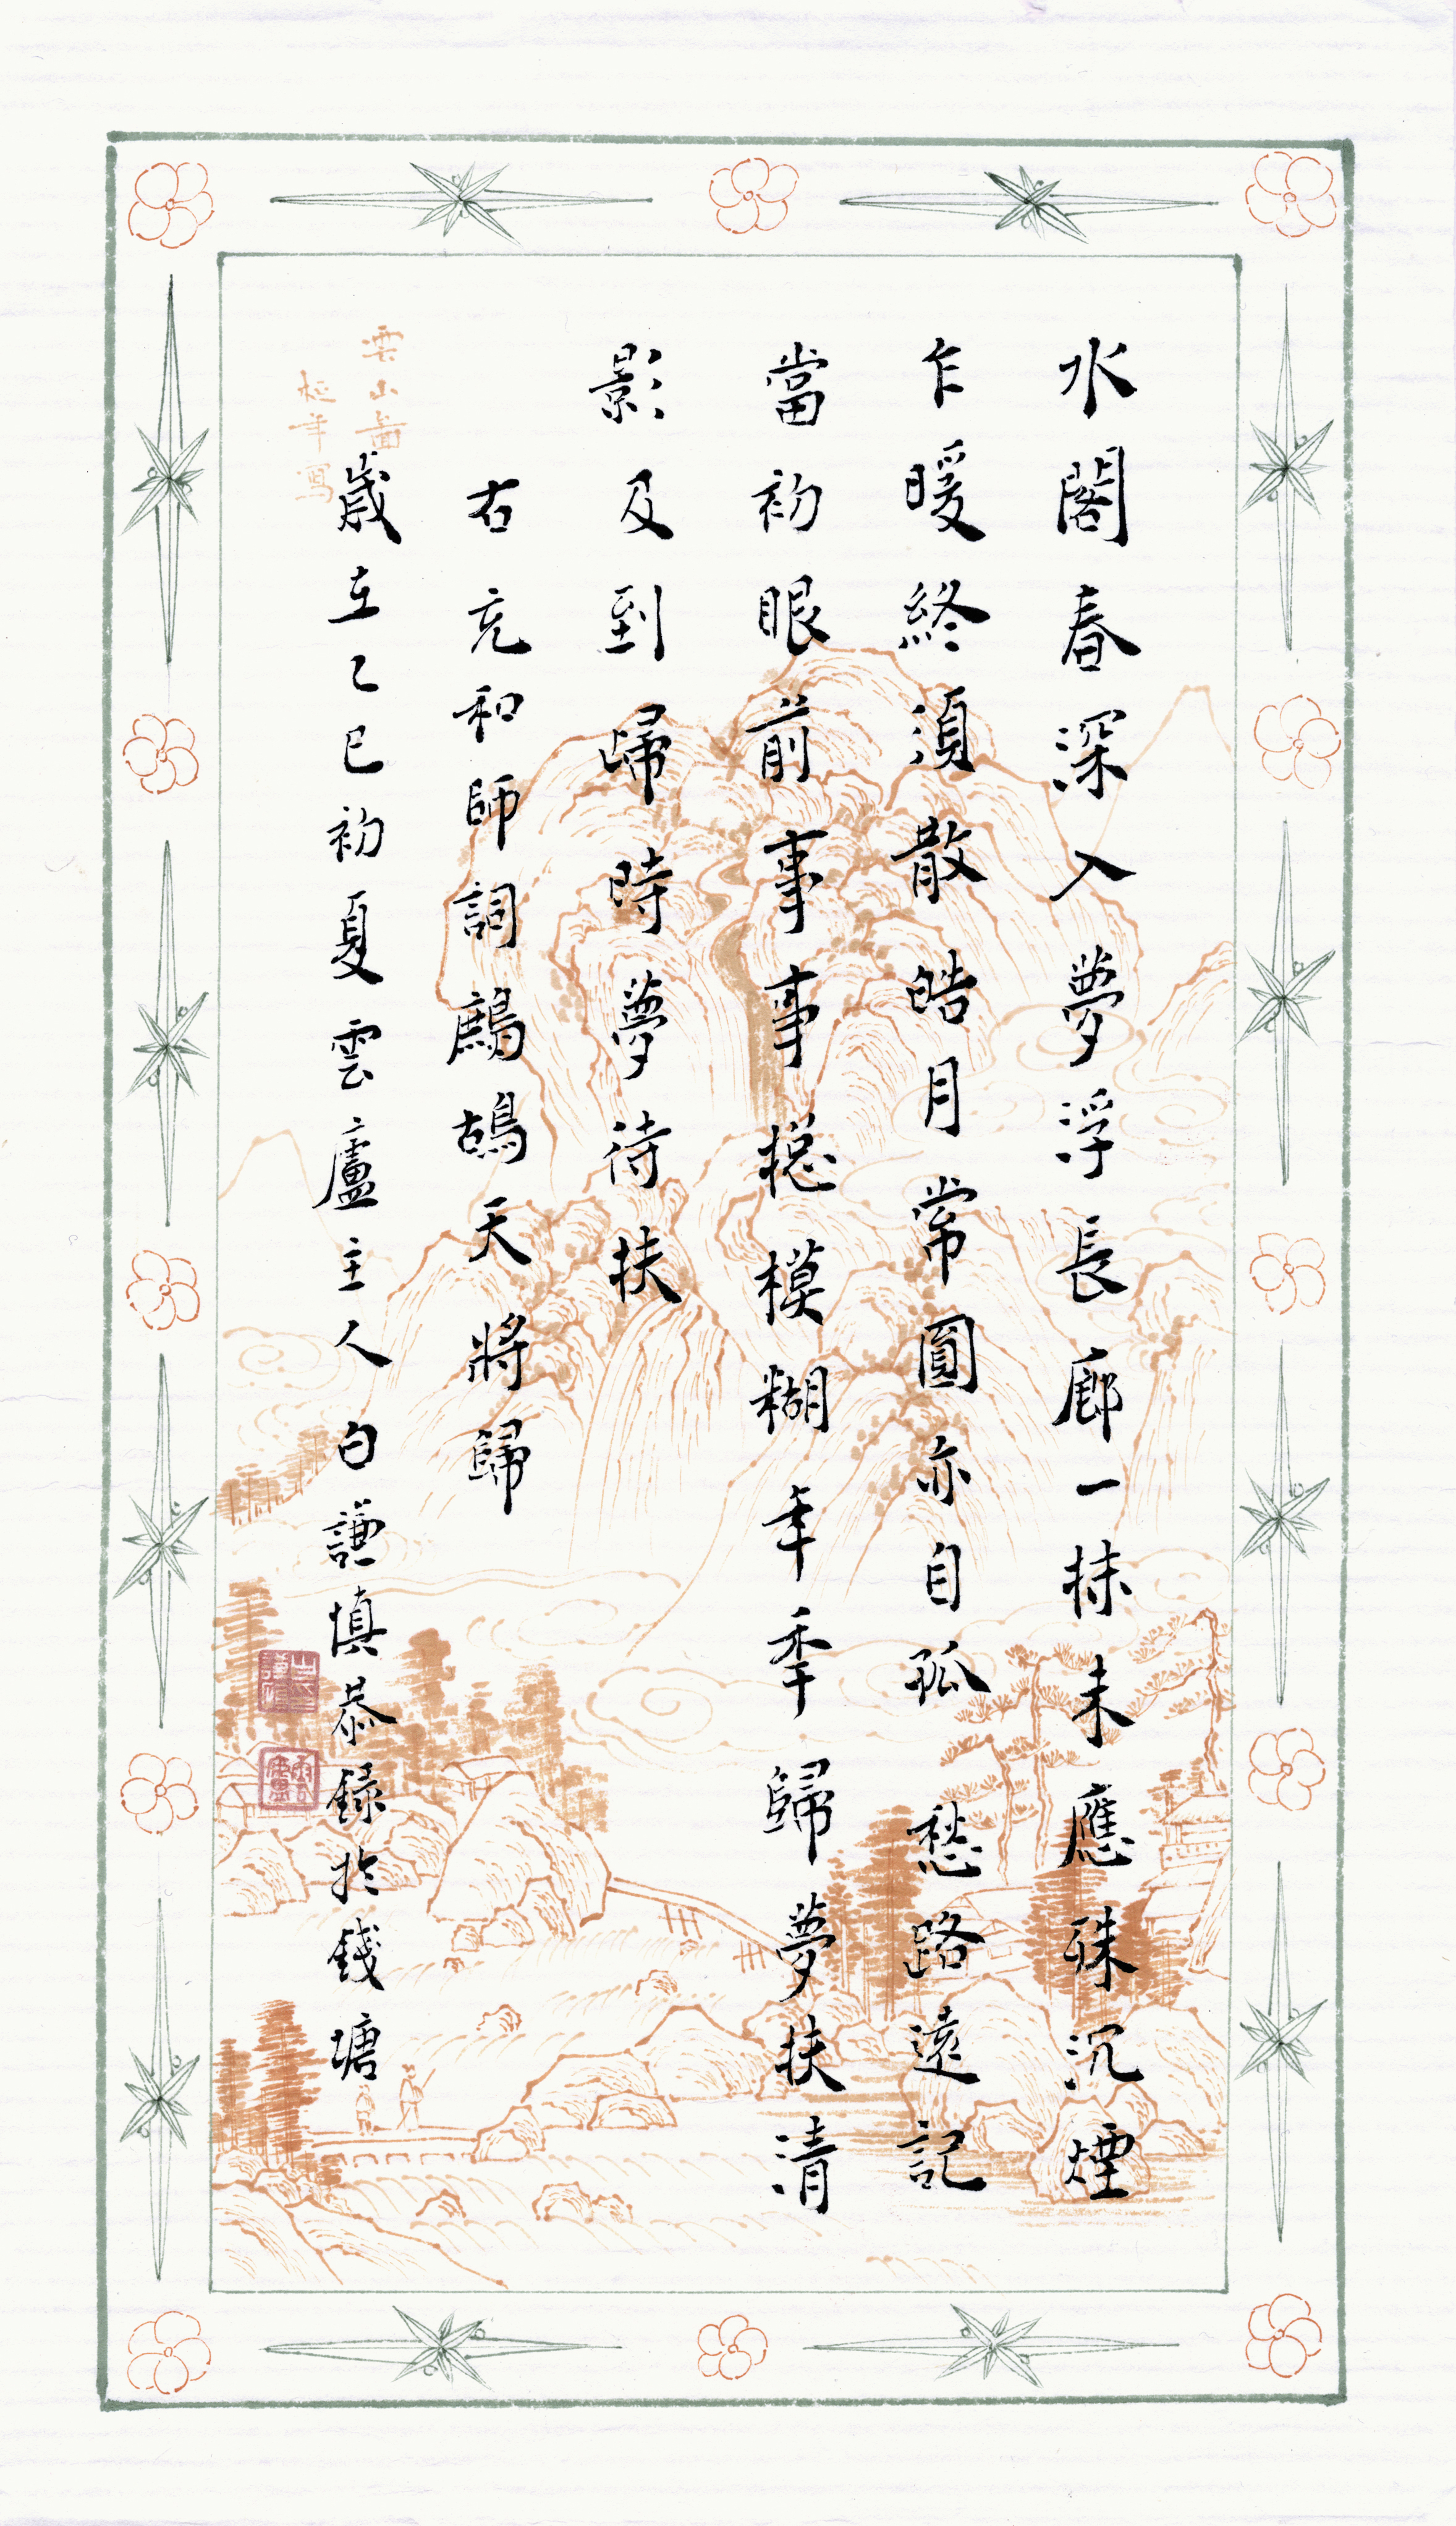 水閣春深入夢浮長廊一抹未應殊沉煙
乍暖終湏散皓月常圓亦自孤 愁路遠記
當初眼前事事摠模糊年秊歸夢扶清
影及到歸時夢待扶
右充和師詞鷓鴣天將歸
歲在乙巳初夏雲廬主人白謙慎恭錄於錢塘
雲山圖
延年寫
雲廬